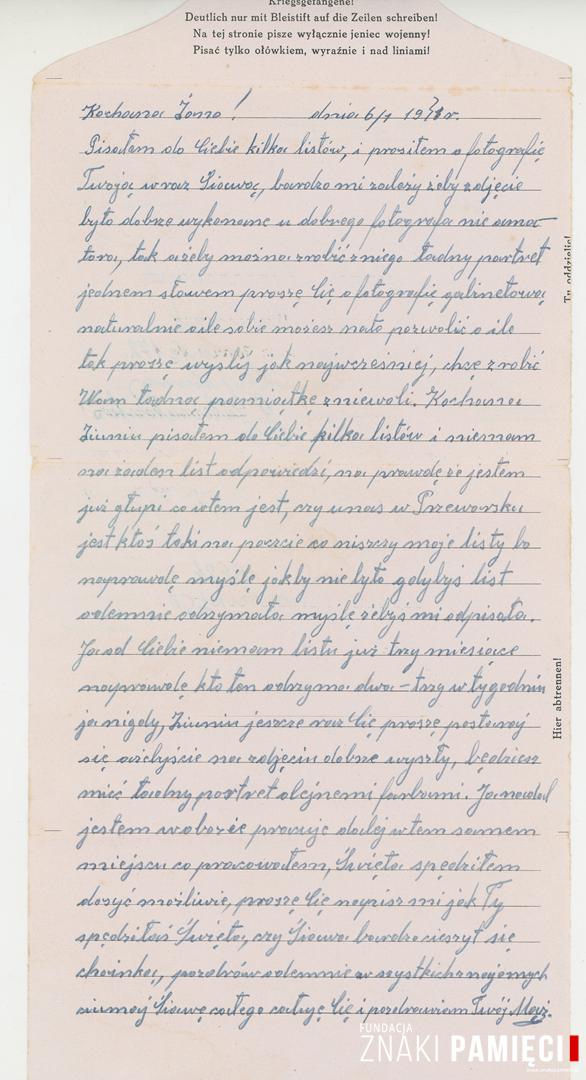 Kriegsgefangene!
Deutlich nur mit Bleistift auf die Zeilen schreiben!
Na tej stronie pisze wyłącznie jeniec wojenny!
Pisać tylko ołówkiem, wyraźnie i nad liniami!
Kochana Żono! dnia 6/1 r.
Pisałem do Ciebie kilka listów, i prosiłem o fotografię
Twoją wraz Siawą, bardzo mi zależy żeby zdjęcie
było dobrze wykonane u dobrego fotografa nie ama-
tora, tak ażeby można zrobić z niego ładny portret
jednem słowem proszę Cię o fotografię gabinetową
naturalnie o ile sobie możesz nato pozwolić o ile
tak proszę wyslij jak najwcześniej, chcę zrobić
Wam ładną pamiątkę zniewoli. Kochana
Ziuniu pisałem do Ciebie kilka listów i niemam
na żaden list odpowiedzi, na prawdę że jestem
już głupi co wtem jest, czy unas w Przeworsku
jest ktoś taki na poczcie co niszczy moje listy bo
naprawdę myślę jakby nie było gdybyś list
odemnie odrzymała myślę żebyś mi odpisała.
Ja od Ciebie niemam listu już trzy miesiące
naprawdę kto ten odrzyma dwa-trzy w tygodniu
ja nigdy, Ziuniu jeszcze raz Cię proszę postaraj
się ażebyście na zdjęciu dobrze wyszły, będziesz
mieć ładny portret olejnemi farbami. Ja nadal
jestem w obozie pracuję dalej w tem samem
miejscu co pracowałem, Święta spędziłem
dosyć możliwie, proszę Cię napisz mi jak Ty
spędziłaś Święta, czy Siawa bardzo cieszyt się
choinką, pozdrów odemnie wszystkich znajomych
Siawę całego całuję Cię i pozdrawiam Twój Mąż.
Tu oddzielić!
Hier abtrennen!
FUNDACJA
ZNAKI PAMIĘCI